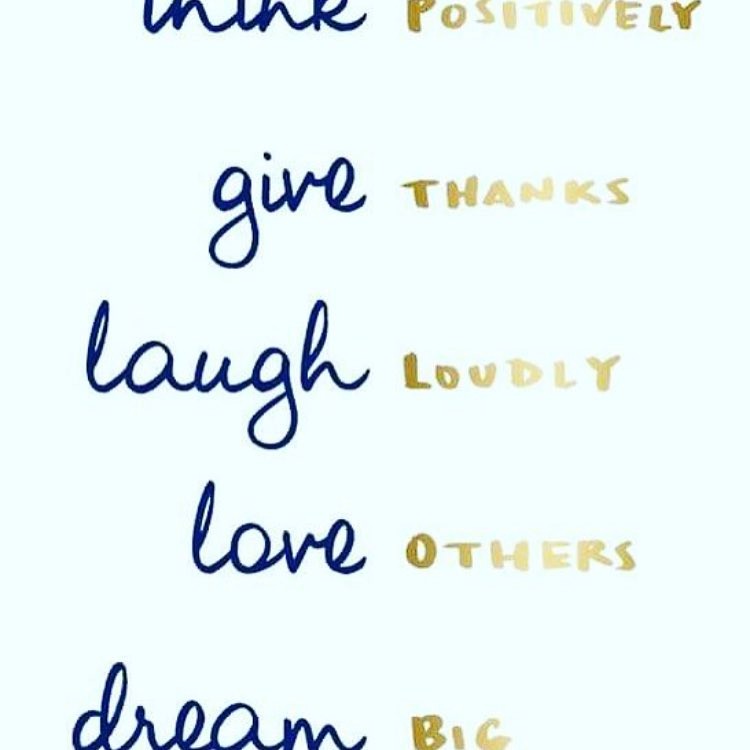 think POSITIVELY
give THANKS
laugh LOUDLY
love OTHERS
dream BIG